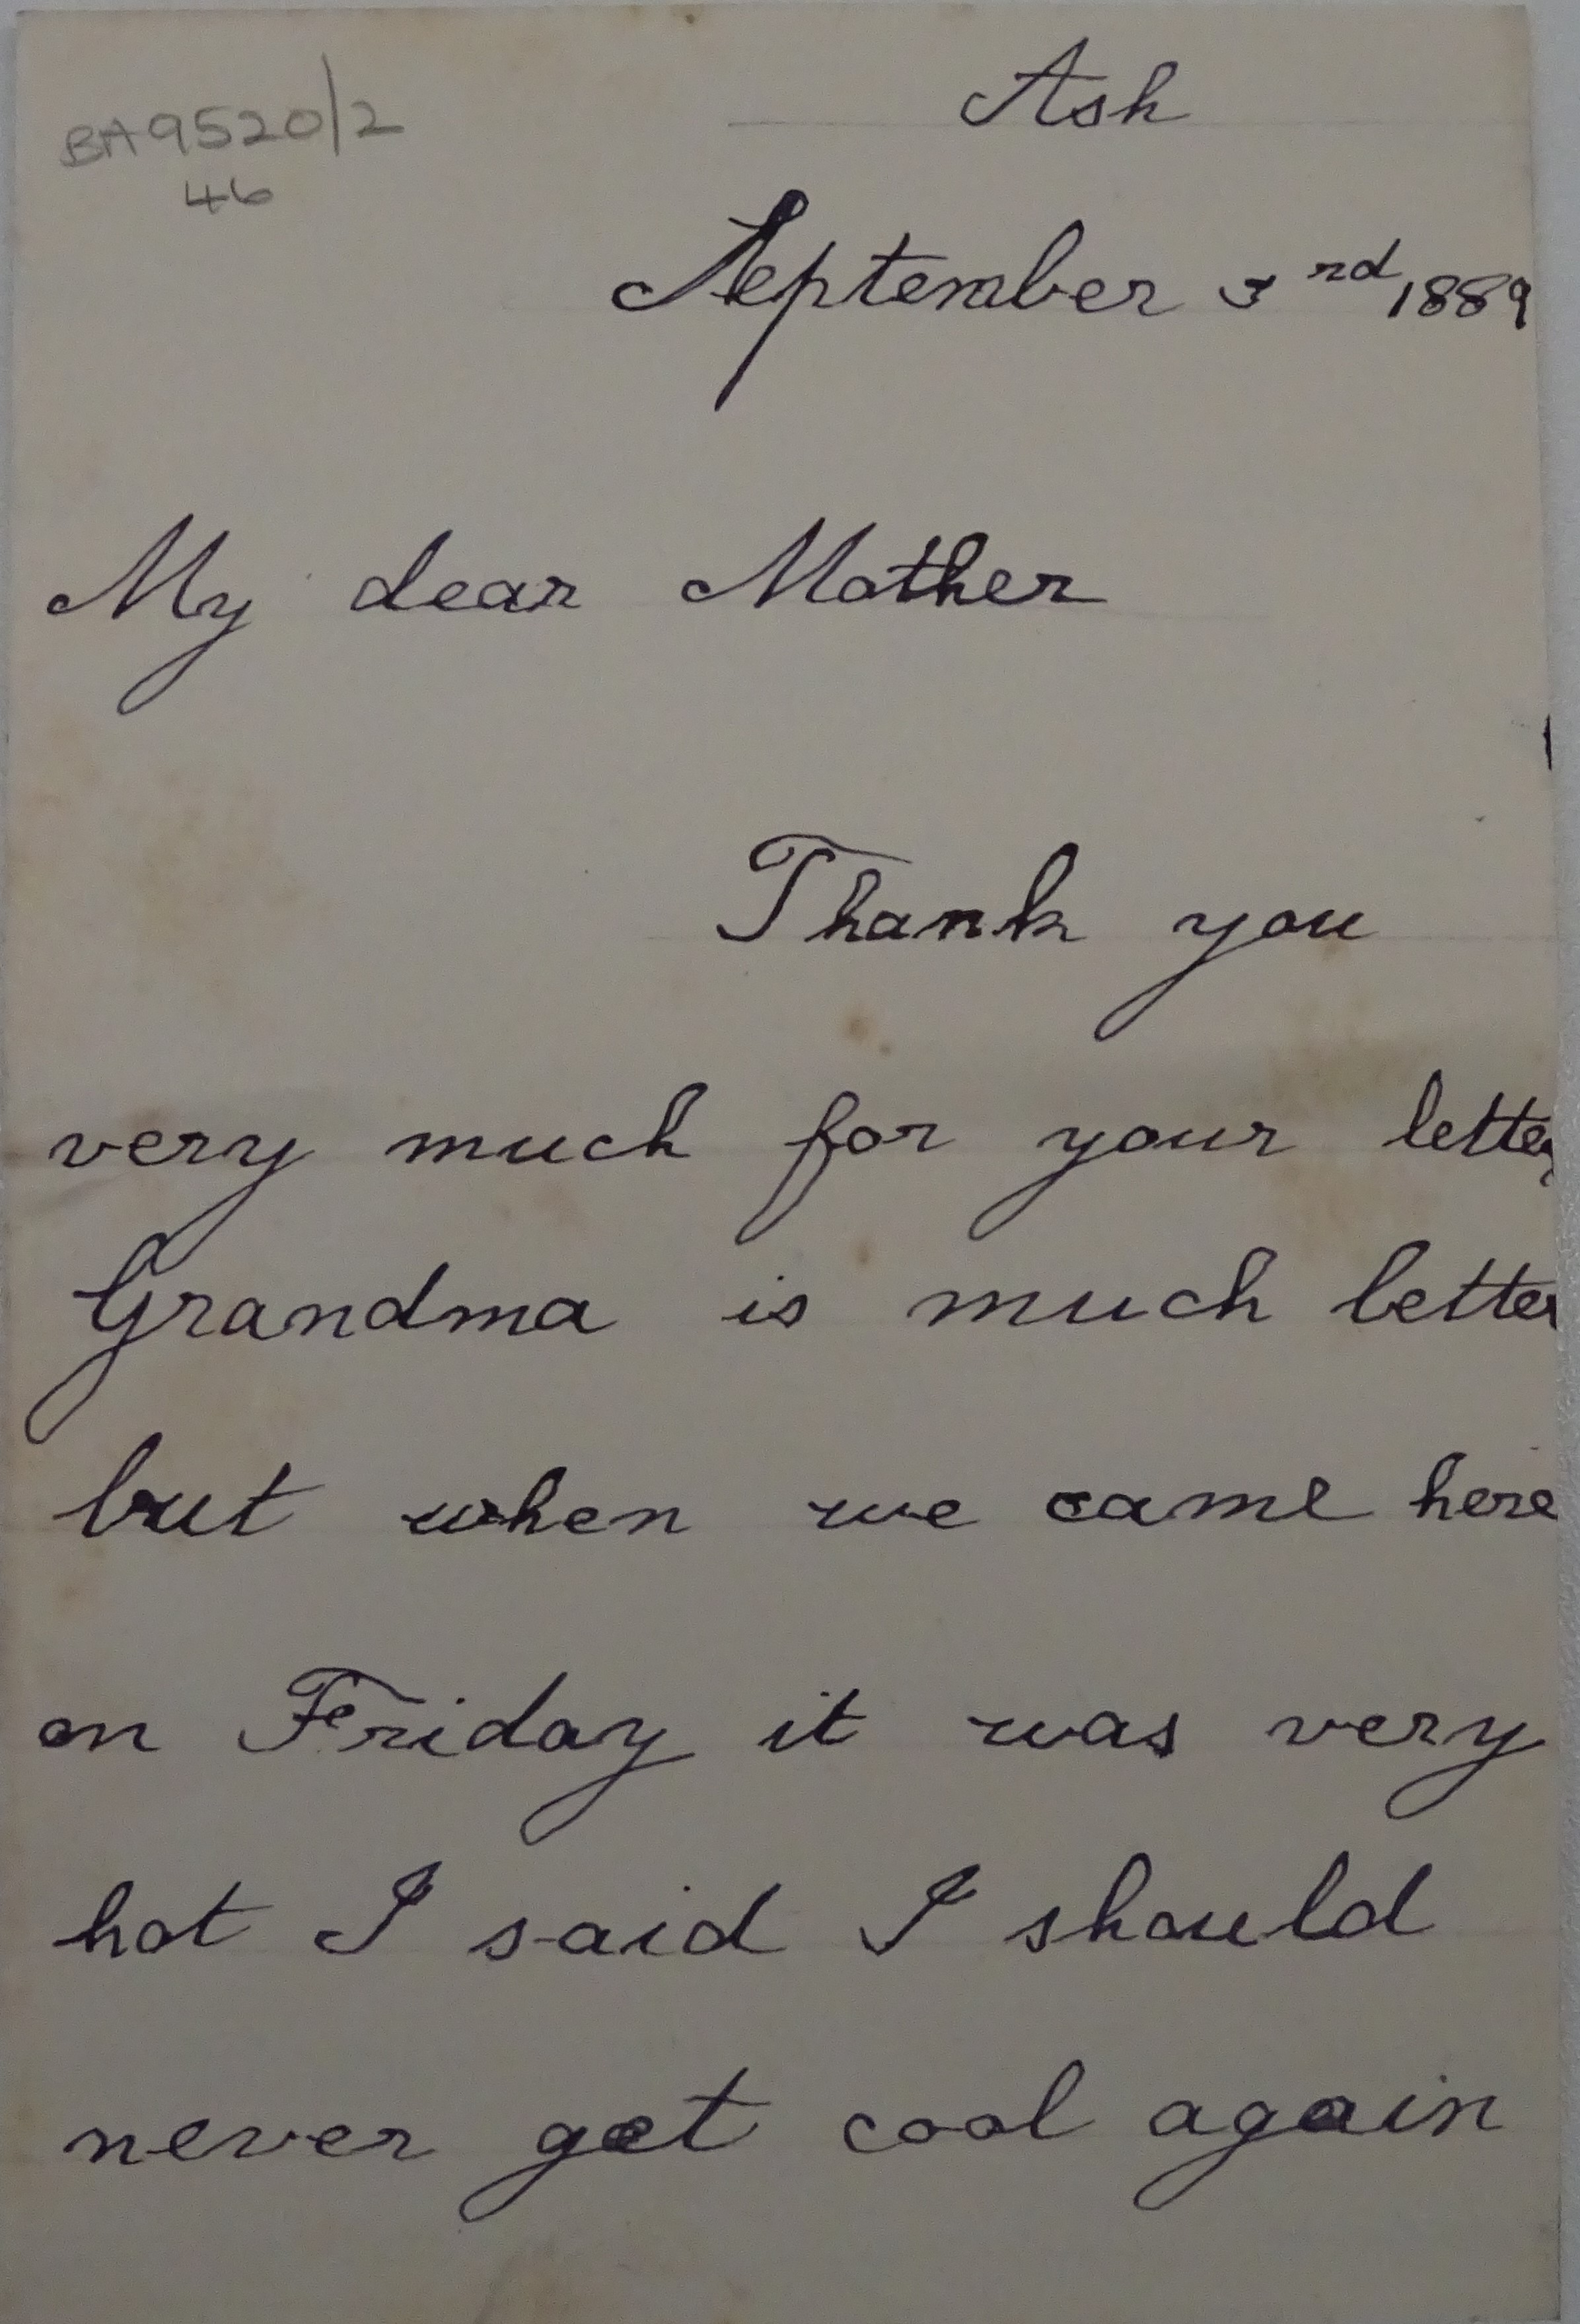 BA9520/2
46
Ash
September 3rd 1889
My dear Mother
Thank you
very much for your letter
Grandma is much better
but when we came here
on Friday it was very
hot I said I should
never get cool again